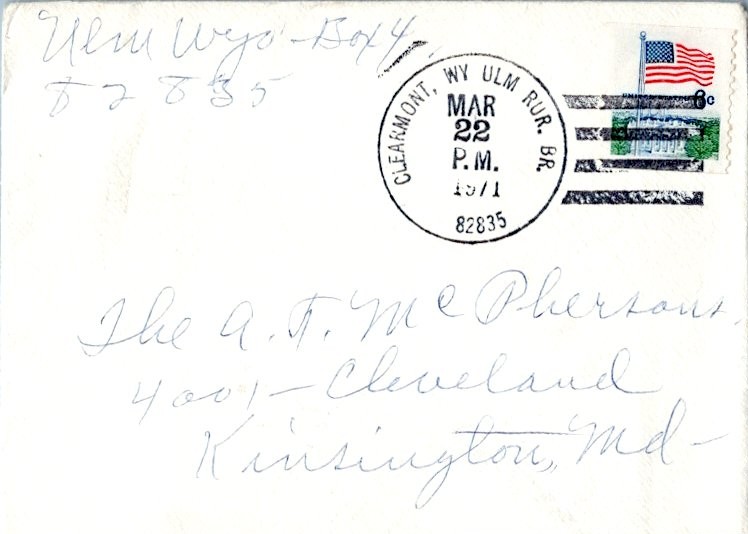 Ulm Wyo - Box 4
82835
CLEARMONT, WY ULM RUR. BR.
MAR
22
P.M.
1971
82835
6c
The A. T. McPhersons.
4001 - Cleveland
Kinsington, Md -